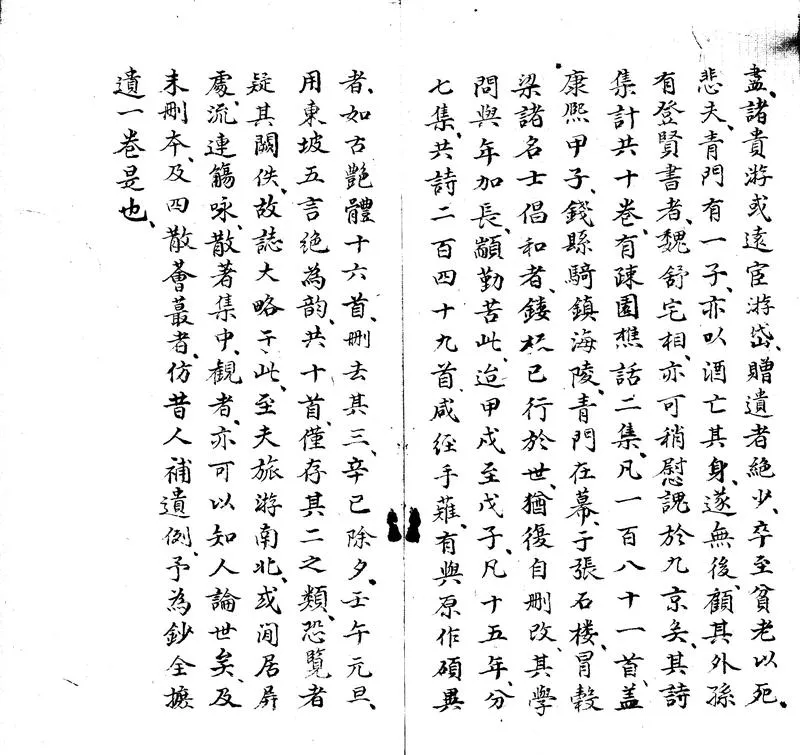 盡、諸貴游或遠宦游岱、贈遺者絶少、卒至貧老以死、
悲夫、青門有一子、亦以酒亡其身、遂無後、顧其外孫
有登賢書者、魏舒宅相、亦可稍慰魂於九京矣、其詩
集計共十卷、有疎園樵話二集、凡一百八十一首、蓋
康熈甲子、錢縣騎鎮海陵、青門在幕、于張石樓、冒穀
梁諸名士倡和者、鏤板已行於世、猶復自刪改、其學
問與年加長、顓勤苦此、迨甲戍至戊子、凡十五年、分
七集、共詩二百四十九首、咸經手薙、有與原作碩異
者、如古艷體十六首、刪去其三、辛巳除夕、壬午元旦、
用東坡五言絶為韵、共十首、僅存其二之類、恐覽者
疑其闕佚、故誌大略于此、至夫旅游南北、或閒居屏
處、流連觴咏、散著集中、觀者、亦可以知人論世矣、及
未刪本、及四散薈蕞者、仿昔人補遺例、予為鈔全摭
遺一卷是也、